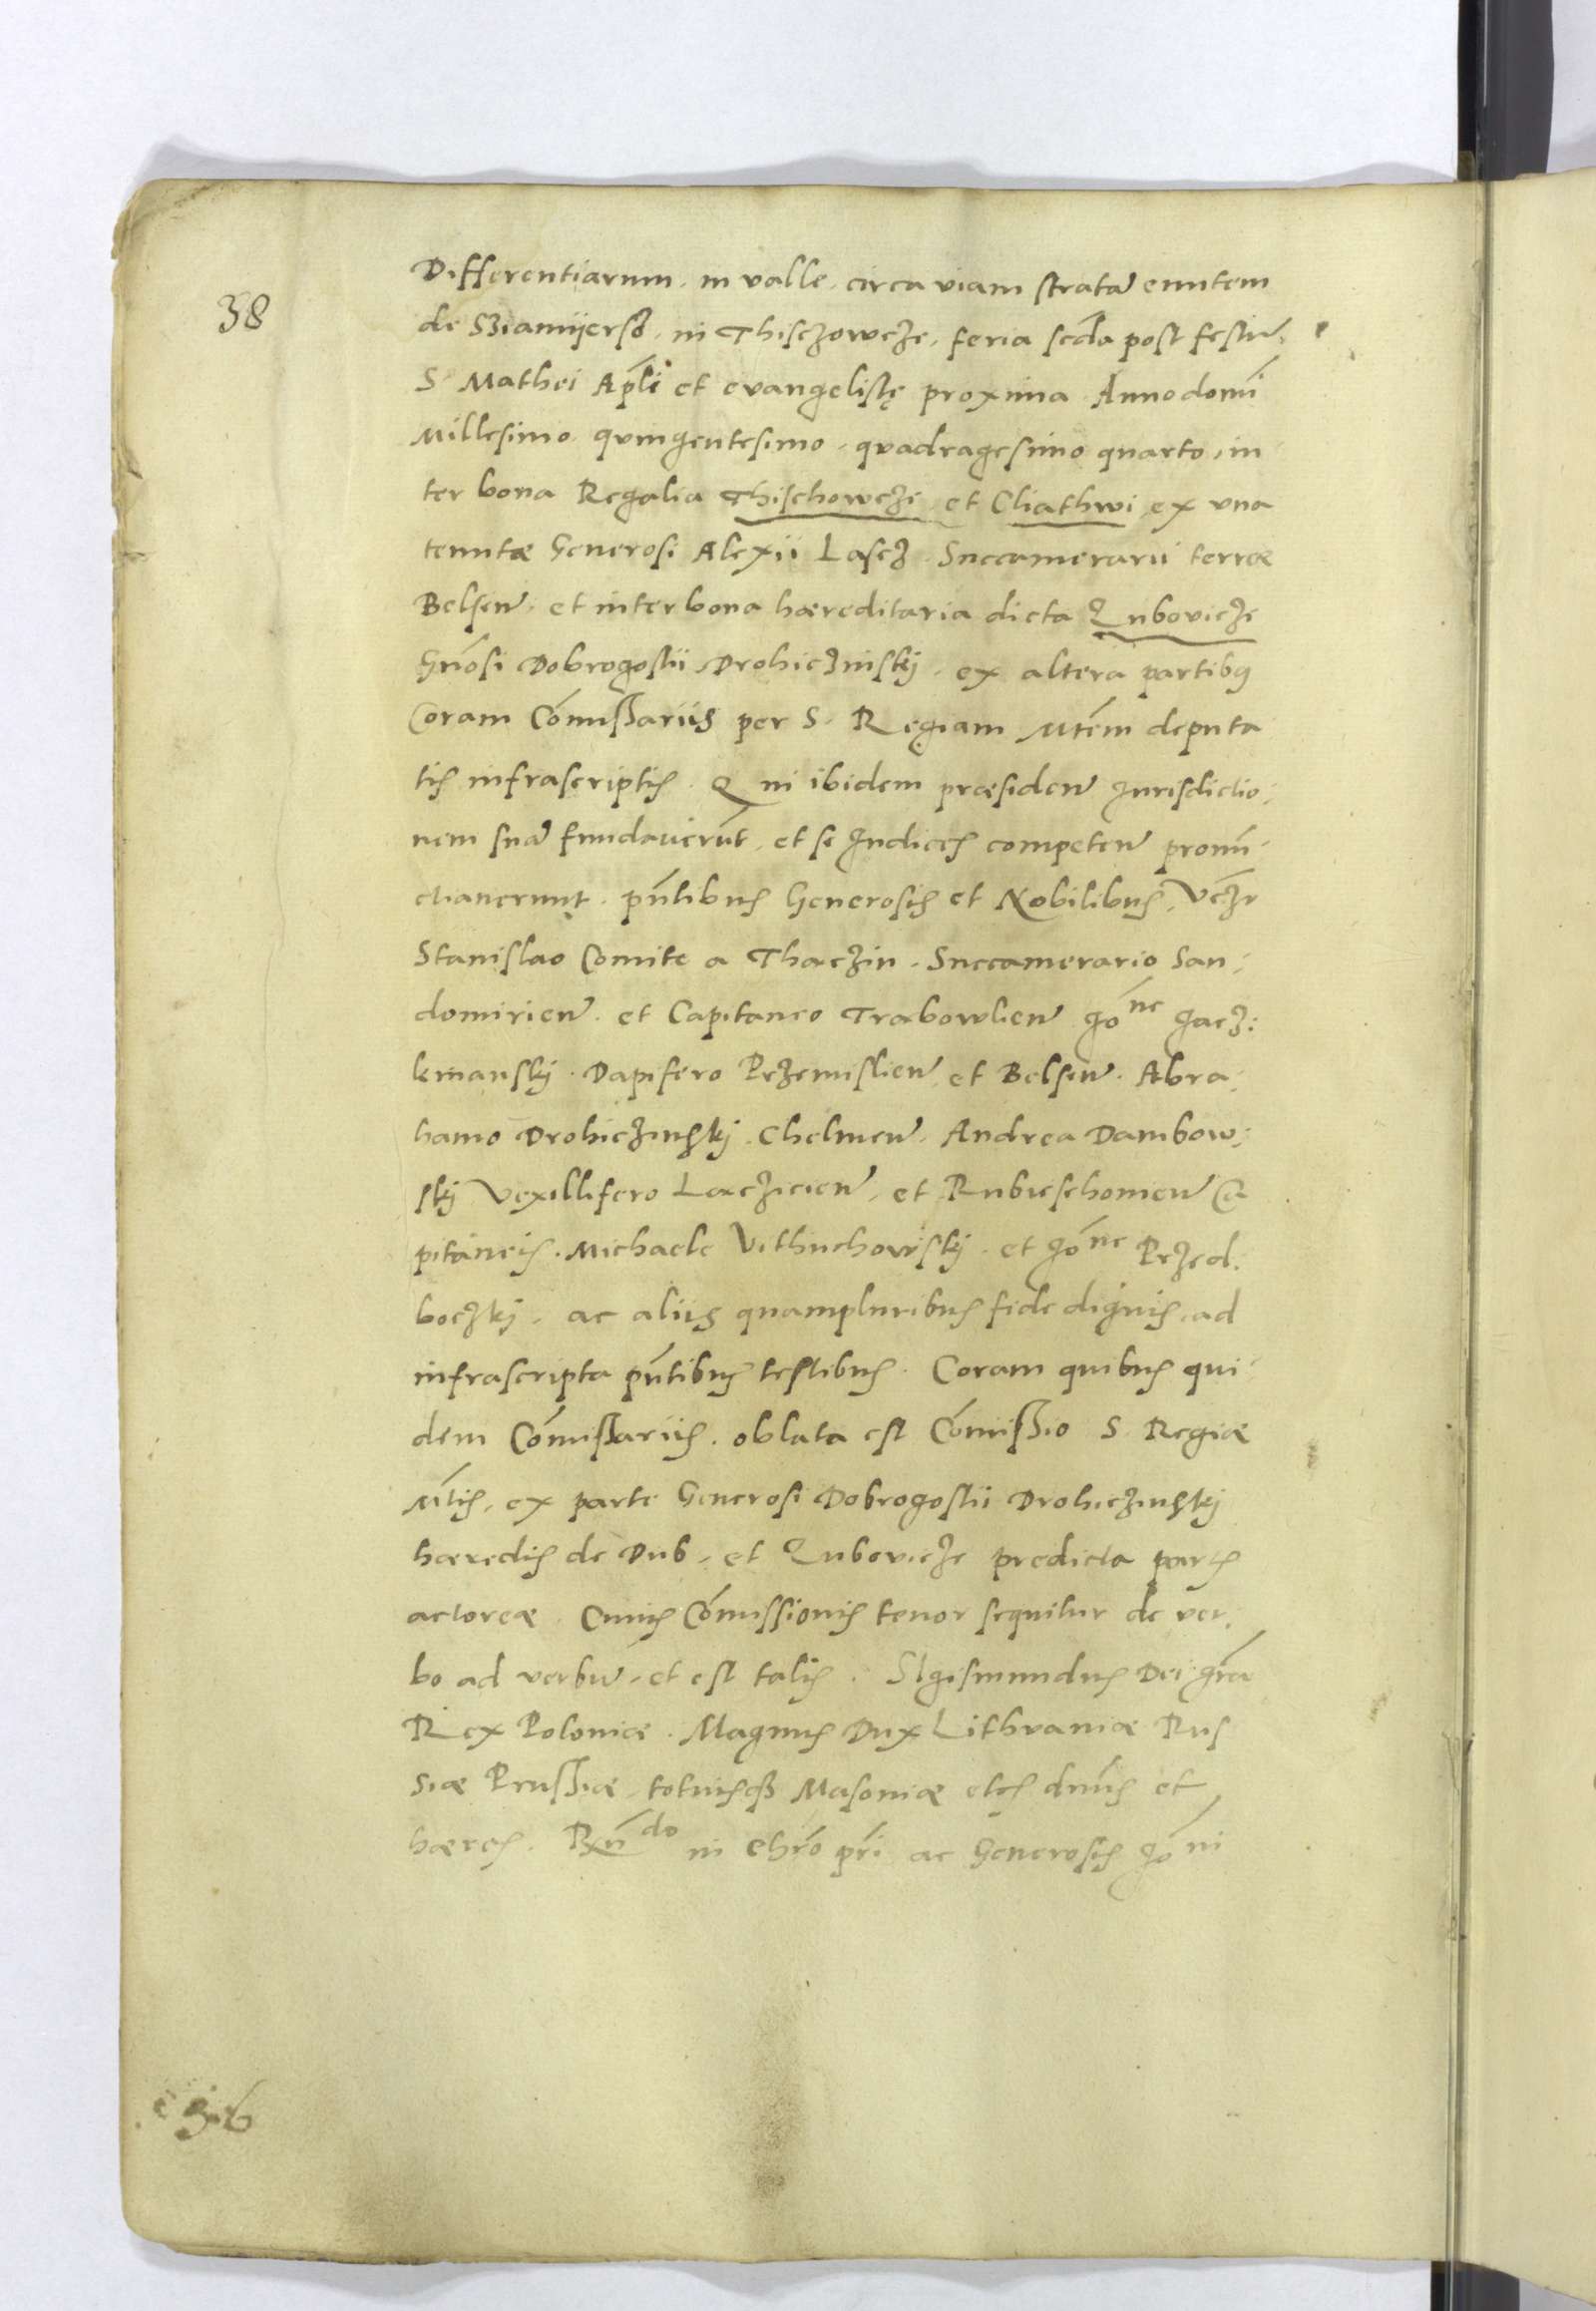 38
Differentiarum. in valle. circa viam stratã euntem
de Sziamijersz. in Thisczowcze. feria scda post festũ.
S. Mathei Apli et evangelistę proxima Anno domĩ
Millesimo quingentesimo. quadragesimo quarto, in
ter bona Regalia Thischowczi et Cliathwi ex una
tenutæ Generosi Alexii Lascz. Succamerarii terræ
Belseñ. et inter bona hæreditaria dicta Lubovicze
Gñosi Dobrogostii Drohicziniskij. ex altera partibq
Coram Cõmissariis per S. Regiam Mtẽm deputa
tis infrascriptis. Qui ibidem præsideñ Jurisdictio:
nem suã fundaverũt. et se Judices competeñ pronũ
ctiaverunt. pñtibus Generosis et Nobilibus.
Stanislao Comite a Thaczin. Succamerario San:
domirieñ. et Capitaneo Trabowlieñ Joñe Jacz:
kmanskij. Dapifero Przemislieñ et Belseñ. Abra:
hamo Drohiczinskj. Chelmeñ. Andrea Dambow:
skij Vexillifero Lacziceñ. et Rubieschovieñ Ca
pitaneis. Michaele Vithuchowskij. et Joñe Przed:
boczkj. ac aliis quampluribus fide dignis. ad
infrascripta pñtibus testibus. Coram quibus qui
dem Cõmissariis. oblata est Cõmissio S. Regiæ
Mtis. ex parte Generosi Dobrogostii Drohiczinskj
hæredis de Dub. et Lubovicze predicta partis
actoreæ. Cuius Cõmissionis tenor sequitur de ver:
bo ad verbũ. et est talis. Sigismundus Dei grã
Rex Poloniæ. Magnus Dux Lithvaniæ Rus
siæ Prussiæ. totiusq Masoviæ etc. dñus et
hæres. Rñdo in Chrõ pri ac Generosis Joñi
36